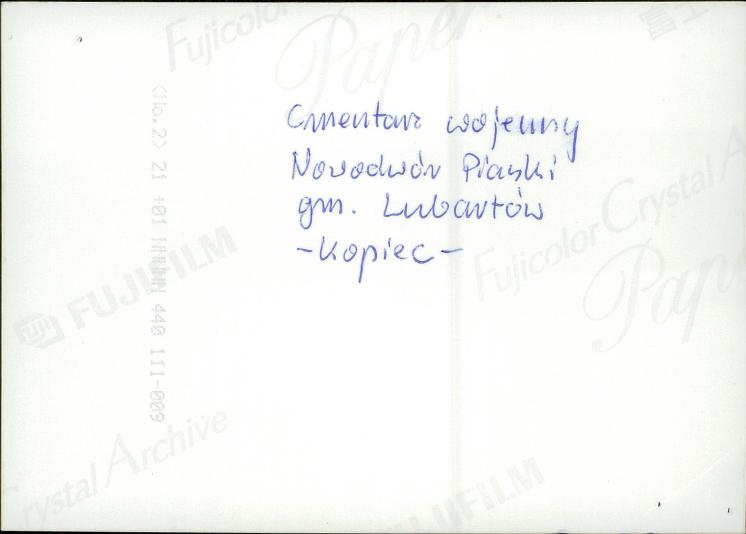 Cmentarz wojenny
Nowodwór Piaski
gm. Lubartów
-Kopiec-
<No.2> 21 +01 NNNNN 440 111-009
Fujicolor
Paper
富士
Fujicolor Crystal A
Pap
FUJI FUJIFILM
rystal Archive
FUJIFILM